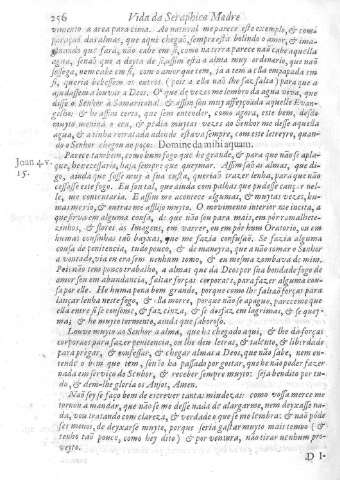 256 Vida da Seraphica Madre
vincato a area para cima. Ao natural me parece este exemplo, & com-
paraçaõ das almas, que aqui chegaõ, sempre estaõ bolindo o amor, & ima-
ginando que faraõ, naõ cabe em si, como na terra parece naõ cabe aquella
agoa, senaõ que a deyta de si, assim esta a alma muy ordinario, que naõ
sossega, nem cabe em si, com o amor que tem, ja a tem a ella empapada em
si, queria bebessem os outros (pois a ella naõ lhe faz falta) para que a
ajudassem a louvar a Deos. O que de vezes me lembro da agua viva, que
disse o Senhor à Samaritana! & assim sou muy affeyçoada aquelle Evan-
gelho; & he assim certo, que sem entender, como agora, este bem, desde
muyto menina o era, & pedia muytas vezes ao Senhor me desse aquella
agua, & a tinha retratada adonde estava sempre, com este letreyro, quan-
do o Senhor chegou ao poço: Domine da mihi aquam.
Joan 4. v.
15.
Parece tambem, como hum fogo que he grande, & para que naõ se apla-
que, he necessario, haja sempre que queymar. Assim saõ as almas, que di-
go, ainda que fosse muy à sua custa, queriaõ trazer lenha, para que naõ
cessasse este fogo. Eu sou tal, que ainda com palhas que pudesse lançar nel-
le, me contentaria. E assim me acontece algumas, & muytas vezes, hu-
mas me rio, & outras me afflijo muyto. O movimento interior me incita, a
que sirva em alguma cousa, di que naõ sou para mais, em pòr ramalhete-
zinhos, & flores às Imagens, em varrer, ou em pòr hum Oratorio, ou em
humas cousinhas taõ bayxas, que me fazia confusaõ. Se fazia alguma
cousa de penitencia, tudo pouco, & de maneyra, que a naõ tomar o Senhor
a vontade, via eu era sem nenhum tomo, & eu mesma zombava de mim.
Pois naõ tem pouco trabalho, a almas que da Deos por sua bondade fogo de
amor seu em abundancia, faltar forças corporaes, para fazer alguma cou-
sa por elle. He huma pena bem grande, porque como lhe faltaõ forças para
lançar lenha neste fogo, & ella morre, porque naõ se apague, pareceme que
ella entre si se consome, & faz cinza, & se desfaz em lagrimas, & se quey-
ma; & he muyto tormento, ainda que saboroso.
Louve muyto ao Senhor a alma, que ha chegado aqui, & lhe dà forças
corporaes para fazer penitencia, ou lhe deu letras, & talento, & liberdade
para prègar, & confessar, & chegar almas a Deos, que naõ sabe, nem en-
tende o bem que tem, senaõ ha passado por gostar, que he naõ poder fazer
nada em serviço do Senhor, & receber sempre muyto: seja bendito por tu-
do, & dem-lhe gloria os Anjos, Amen.
Naõ sey se faço bem de escrever tantas miudezas: como vossa merce me
tornou a mandar, que naõ se me desse nada de alargarme, nem deyxasse na-
da, vou tratando com clareza, & verdade o que se me lembra: & naõ pòde
ser menos, de deyxarse muyto, porque seria gastar muyto mais tempo (&
tenho taõ pouco, como hey dito) & por ventura, naõ tirar nenhum pro-
veyto.
D I-